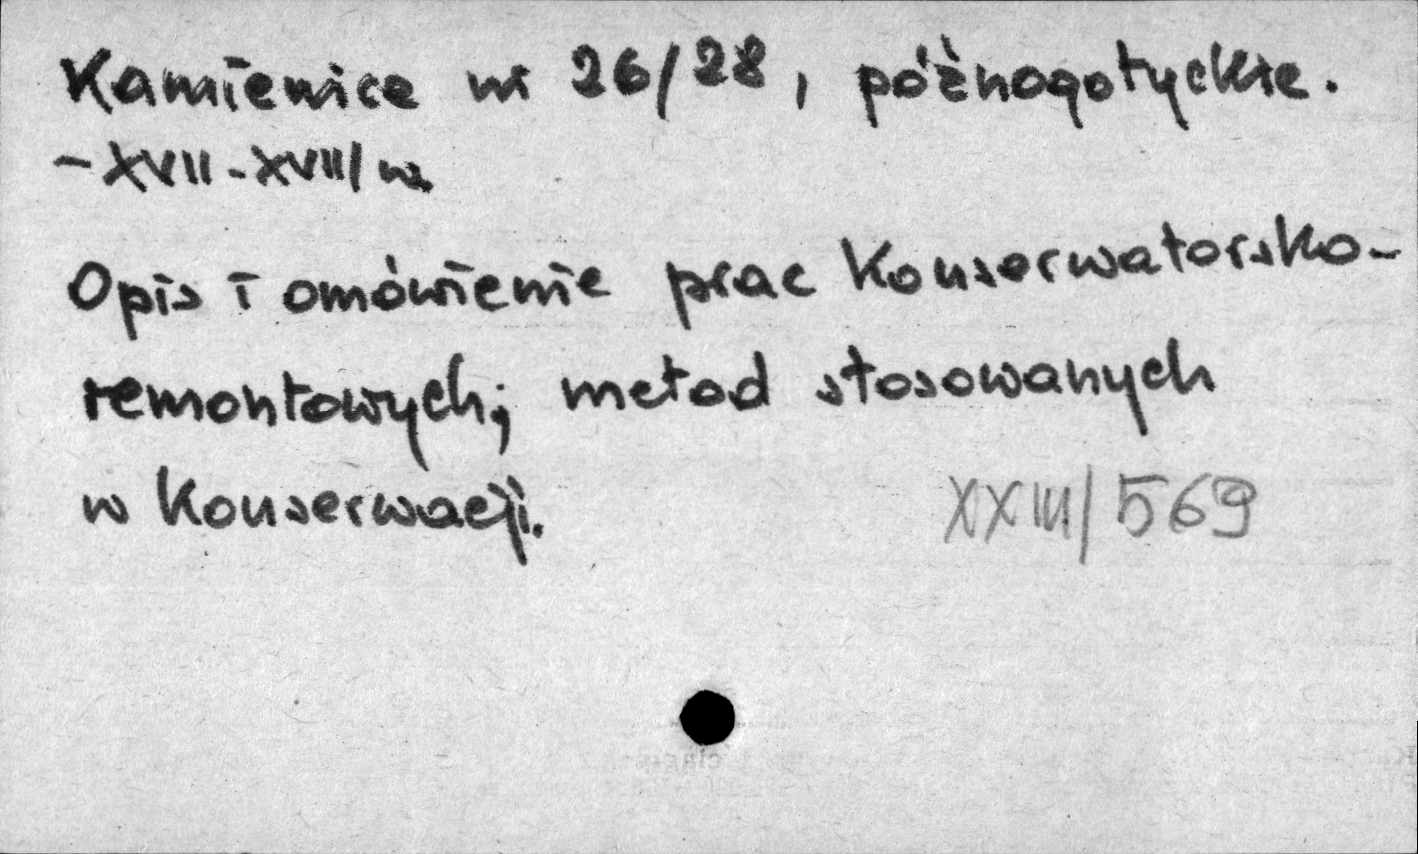 Kamienice nr 26/28, późnogotyckie.
- XVII-XVIII/ w.
Opis i omówienie prac konserwatorsko-
remontowych; metod stosowanych
w konserwacji.
XXIII/569